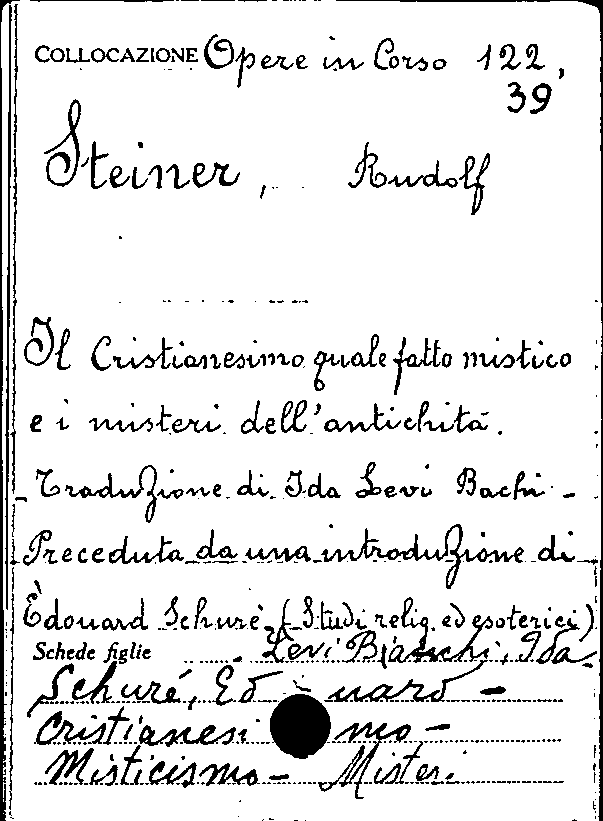 COLLOCAZIONE Opere in Corso 122,
39
Steiner, Rudolf
Il Cristianesimo quale fatto mistico
e i misteri dell'antichità.
- Traduzione di Ida Levi Bachi -
Preceduta da una introduzione di
Èdouard Schurè - (Studi relig. ed esoterici)
Schede figlie - Levi Bianchi, Ida -
Schuré, Ed - uard -
Cristianesi mo -
Misticismo - Misteri